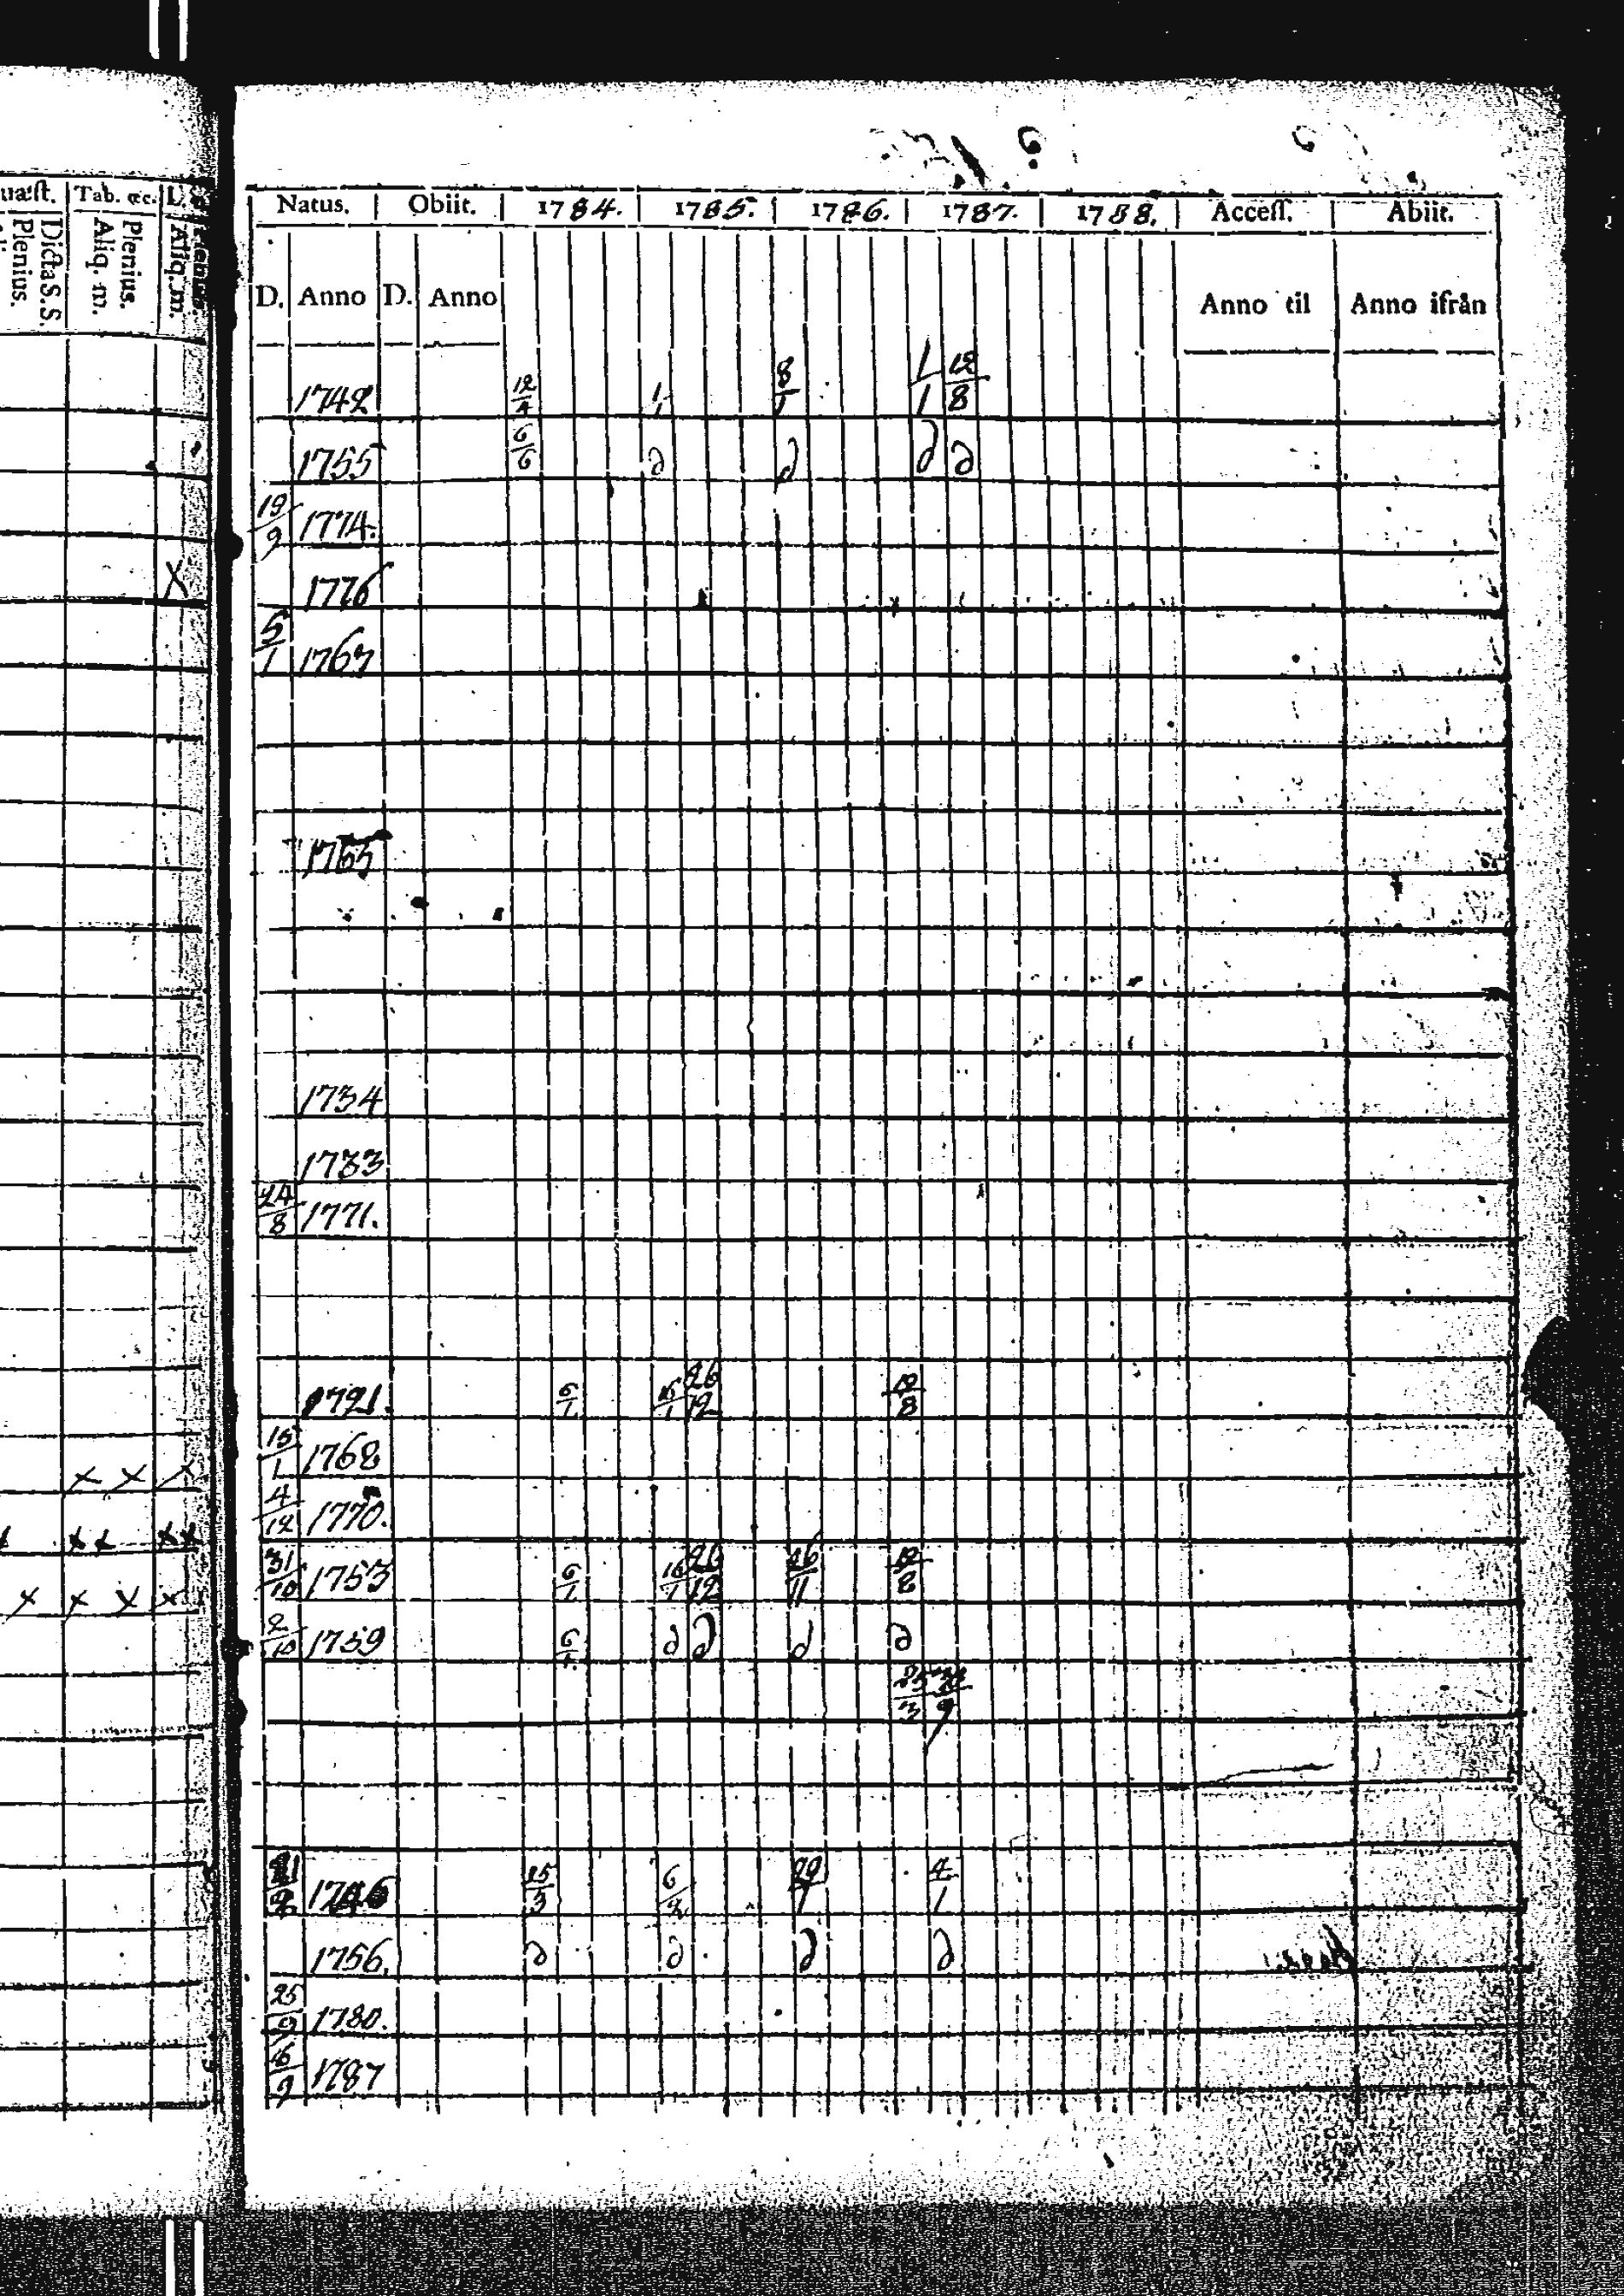 uæſt. Tab. &c. L.
Plenius. Dicta S.S. Aliq. m. Plenius. Aliq. m.
Natus. Obiit. 1784. 1785. 1786. 1787. 1788. Acceſſ. Abiit.
D. Anno D. Anno Anno til Anno ifrån
1742 12/4 1/1 8/1 1/1 12/8
1755 6/6 d d d d
19/9 1774.
X 1776
5/1 1767
1765
1734
1733
24/8 1771.
1721. 6/1 16/1 26/12 12/8
x x x 15/1 1768
xx xx 4/12 1770.
x x x x 31/10 1753 6/1 16/1 26/12 26/11 12/8
2/10 1759 6/1 d d d d
25/3
1746 25/3 6/2 4/1
1756. d d d d
25/9 1780.
1787